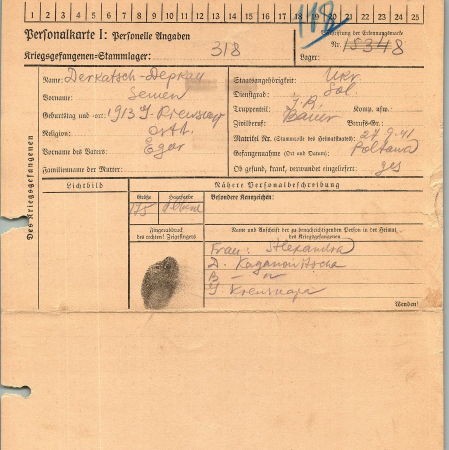 1 2 3 4 5 6 7 8 9 10 11 12 13 14 15 16 17 18 19 20 21 22 23 24 25
118
Personalkarte I: Personelle Angaben
Beschriftung der Erkennungsmarke
Kriegsgefangenen-Stammlager: 318
Nr. 15348
Lager:
Des Kriegsgefangenen
Name: Derkatsch-
Vorname: Semen
Geburtstag und -ort: 1913
Religion: ort.
Vorname des Vaters: Egor
Familienname der Mutter:
Staatsangehörigkeit: Ukr.
Dienstgrad: Sol.
Truppenteil: Komp. usw.
Zivilberuf: Bauer Berufs-Gr.:
Matrikel Nr. (Stammrolle des Heimatstaates):
Gefangennahme (Ort und Datum): 27.9.41 Poltawa
Ob gesund, krank, verwundet eingeliefert: ges
Lichtbild
Nähere Personalbeschreibung
Größe
Haarfarbe
Besondere Kennzeichen:
175
Fingerabdruck
des rechten! Zeigefingers
Name und Anschrift der zu benachrichtigenden Person in der Heimat
des Kriegsgefangenen
Frau: Alexandra
D. Kaganowitscha
Wenden!